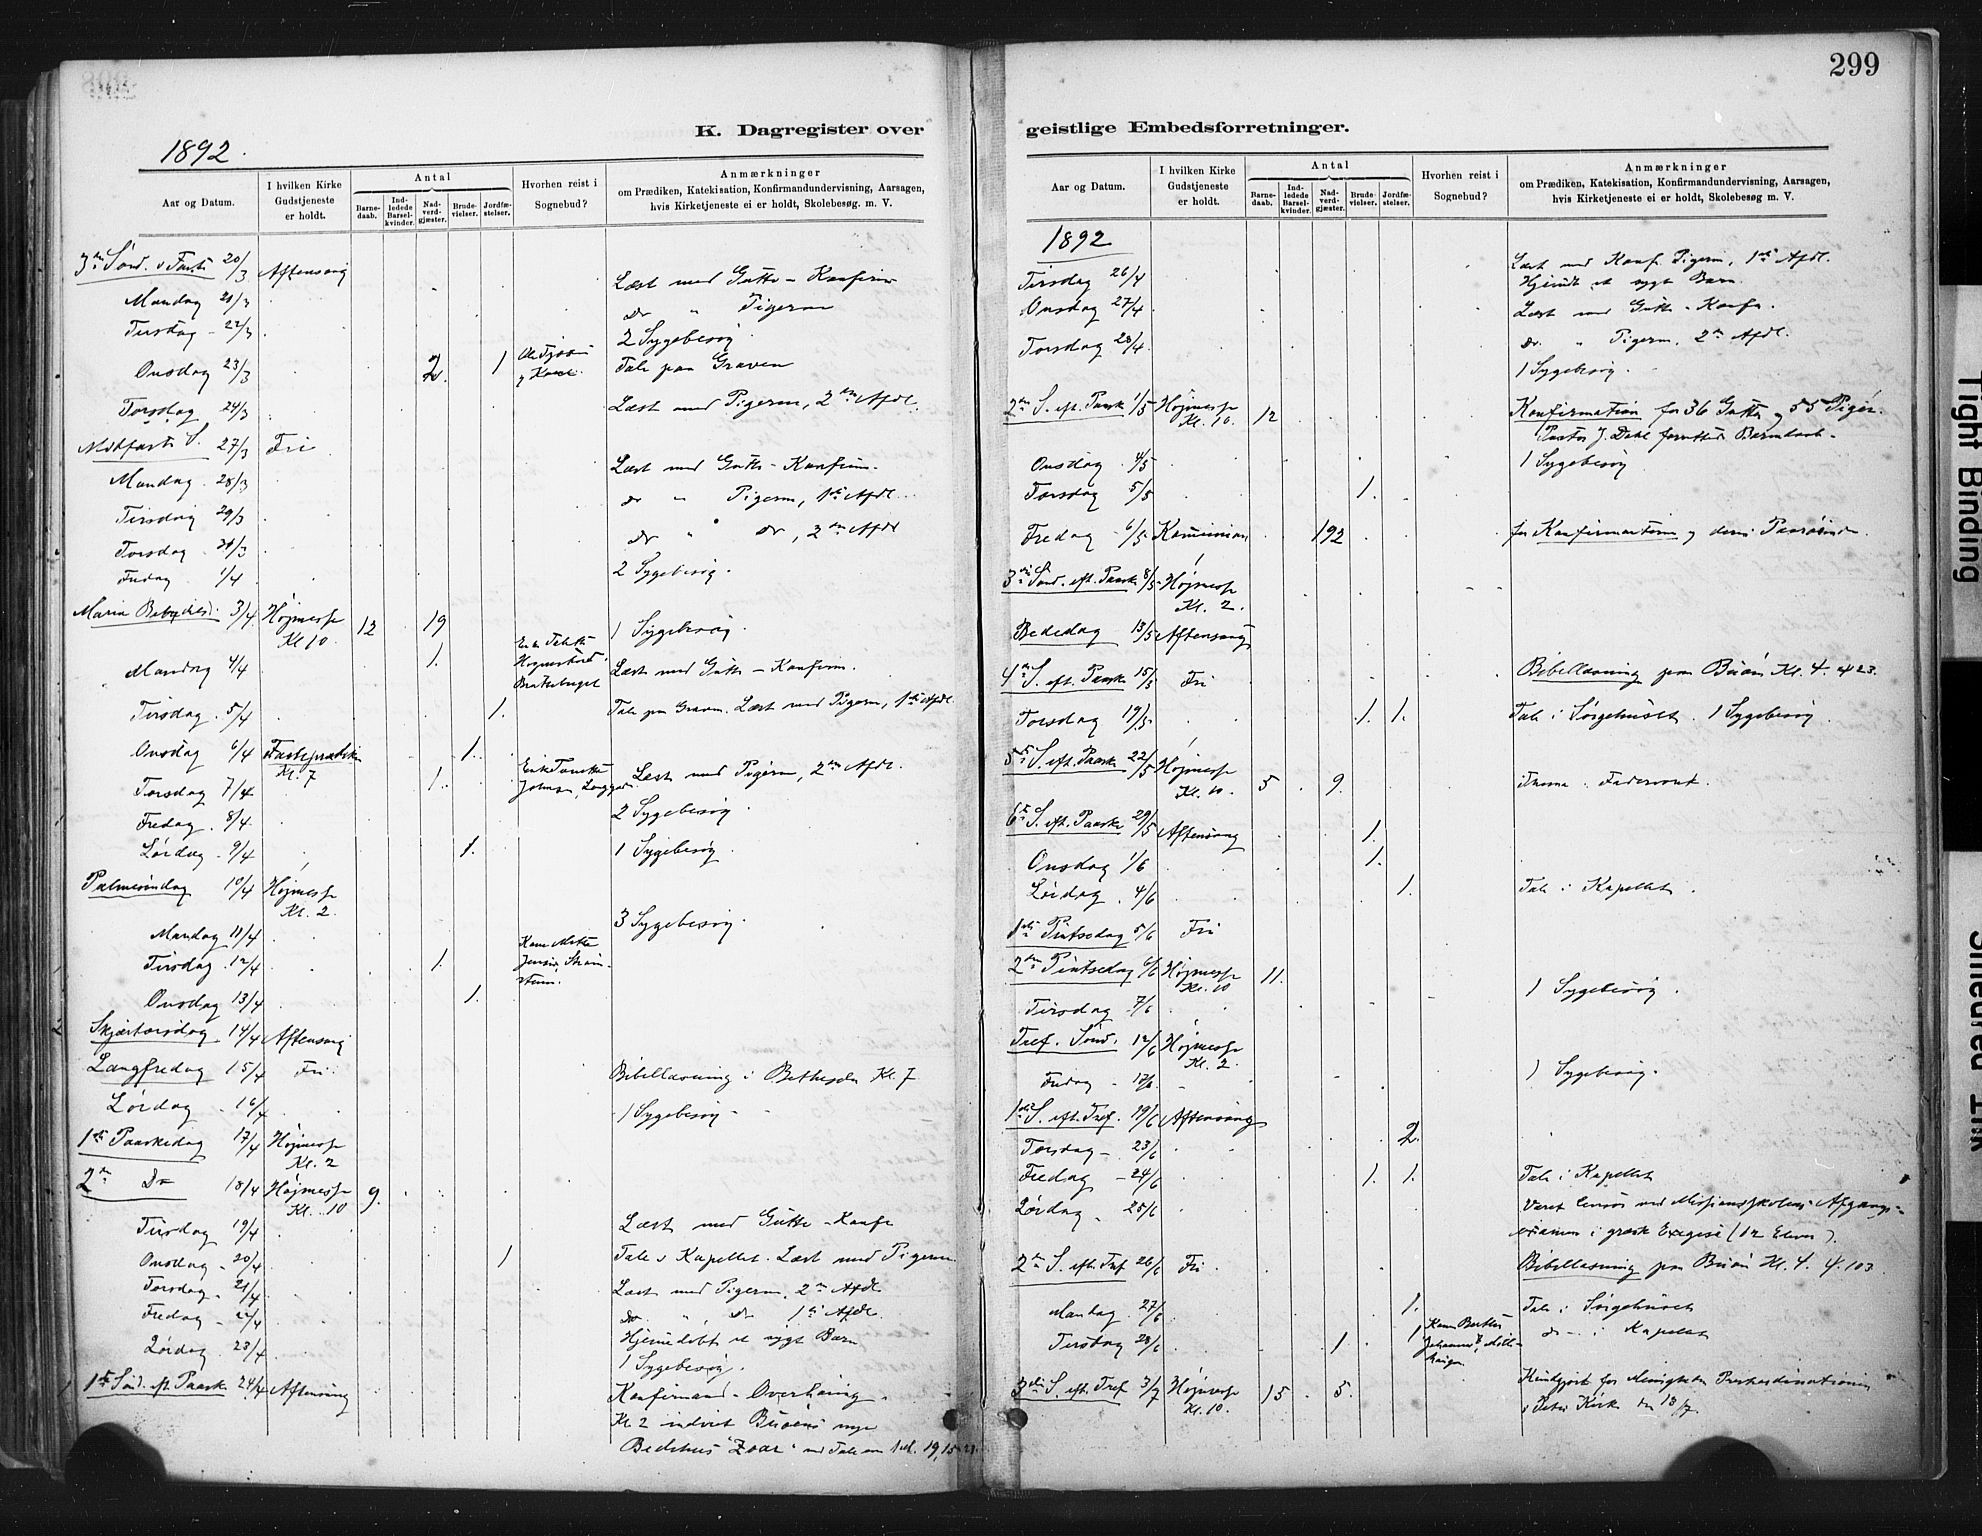 299
K. Dagregister over
geistlige Embedsforretninger.
1892
Aar og Datum.
I hvilken Kirke Gudstjeneste er holdt.
Antal
Barnedaab.
Indledede Barselkvinder.
Nadverdgjæster.
Brudevielser.
Jordfæstelser.
Hvorhen reist i Sognebud?
Anmærkninger
om Prædiken, Katekisation, Konfirmandundervisning, Aarsagen,
hvis Kirketjeneste ei er holdt, Skolebesøg. m. V.
20/3 Aftensang
Læst med Gutte-Konfirm
Mandag 21/3 Pigerne
Tirsdag 22/3 2 Sygebesøg
Onsdag 23/3 2. 1 Tale paa Graven
Torsdag 24/3 Læst med Pigerne, 2den Afdl.
Midfaste S. 27/3 Fri
Mandag 28/3 Læst med Gutte-Konfirm.
Tirsdag 29/3 do " Pigerne, 1ste Afdl.
Torsdag 31/3 do " do, 2den Afdl
Fredag 1/4 2 Sygebesøg.
Maria Bebudelse 3/4 Højmesse Kl 10. 12 19 1 Sygebesøg.
Mandag 4/4 1. Læst med Gutte-Konfirm.
Tirsdag 5/4 1. Tale paa Graven. Læst med Pigerne, 1ste Afdl.
Onsdag 6/4 Fasteprædiken Kl. 7 1.
Torsdag 7/4 1. Læst med Pigerne, 2den Afdl.
Fredag 8/4 2 Sygebesøg
Lørdag 9/4 1. 1 Sygebesøg
Palmesøndag 10/4 Højmesse Kl. 2
Mandag 11/4 3 Sygebesøg.
Tirsdag 12/4 1.
Onsdag 13/4 1.
Skjærtorsdag 14/4 Aftensang
Langfredag 15/4 Fri Bibellæsning i Bethesda Kl. 7
Lørdag 16/4 1 Sygebesøg
1ste Paaskedag 17/4 Højmesse Kl. 2
2den Do 18/4 Højmesse Kl. 10 9.
Tirsdag 19/4 Læst med Gutte-Konf
Onsdag 20/4 1 Tale i Kapellet. Læst med Pigerne
Torsdag 21/4 Læst med Pigerne, 2den Afdl
Fredag 22/4 do " do 1ste Afdl.
Hjemmedøbt et sygt Barn
Lørdag 23/4 1 Sygebesøg.
1ste Sønd. eft. Paaske 24/4 Aftensang Konfirmand-Overhøring
Kl 2 indviet Buøens nye
Bedehus "Zoar"
Aar og Datum.
I hvilken Kirke Gudstjeneste er holdt.
Antal
Barnedaab.
Indledede Barselkvinder.
Nadverdgjæster.
Brudevielser.
Jordfæstelser.
Hvorhen reist i Sognebud?
Anmærkninger
om Prædiken, Katekisation, Konfirmandundervisning, Aarsagen,
hvis Kirketjeneste ei er holdt, Skolebesøg m. V.
1892
Tirsdag 26/4 Læst med Konf. Pigerne, 1ste Afdl.
et sygt Barn.
Onsdag 27/4 Læst med Gutte-Konf.
Torsdag 28/4 do. " Pigerne, 2den Afdl.
1 Sygebesøg.
2den S. eft. Paaske 1/5 Højmesse Kl. 10. 12 Konfirmation for 36 Gutter og 55 Piger.
Pastor J. Dahl forrettede Barnedaab.
Onsdag 4/5 1 Sygebesøg
Torsdag 5/5 1.
Fredag 6/5 Kommunion 192 for Konfirmanterne og deres Paarørende
3die Sønd. eft. Paaske 8/5 Højmesse Kl. 2.
Bededag 13/5 Aftensang
4de S. eft. Paaske 15/5 Fri Bibellæsning paa Buøen Kl. 4. 23.
Torsdag 19/5 1. 1. Tale i Sørgehuset. 1 Sygebesøg
5te S. eft. Paaske 22/5 Højmesse Kl. 10 5 9. Fadervort.
6te S. eft. Paaske 29/5 Aftensang 1.
Onsdag 1/6 1.
Lørdag 4/6 1. Tale i Kapellet
1ste Pintsedag 5/6 Fri
2den Pintsedag 6/6 Højmesse Kl. 10 11.
Tirsdag 7/6 1 Sygebesøg
Tref. Sønd. 12/6 Højmesse Kl. 2.
Fredag 17/6 1 Sygebesøg.
1ste S. eft. Tref. 19/6 Aftensang
Torsdag 23/6 2.
Fredag 24/6 1. 1. Tale i Kapellet
Lørdag 25/6 Været Censor ved Missionsskolens Afgangs-
examen i græsk Exegese (12 Elever).
2den S. eft. Tref 26/6 Fri Bibellæsning paa Buøen Kl. 4. 103
Mandag 27/6 1. Tale i Sørgehuset
Tirsdag 28/6 1 1 do i Kapellet
3die S. eft. Tref 3/7 Højmesse Kl. 10. 15 5. Kundgjort for Menigheden
i Petri Kirke
Tight Binding
Smeared Ink